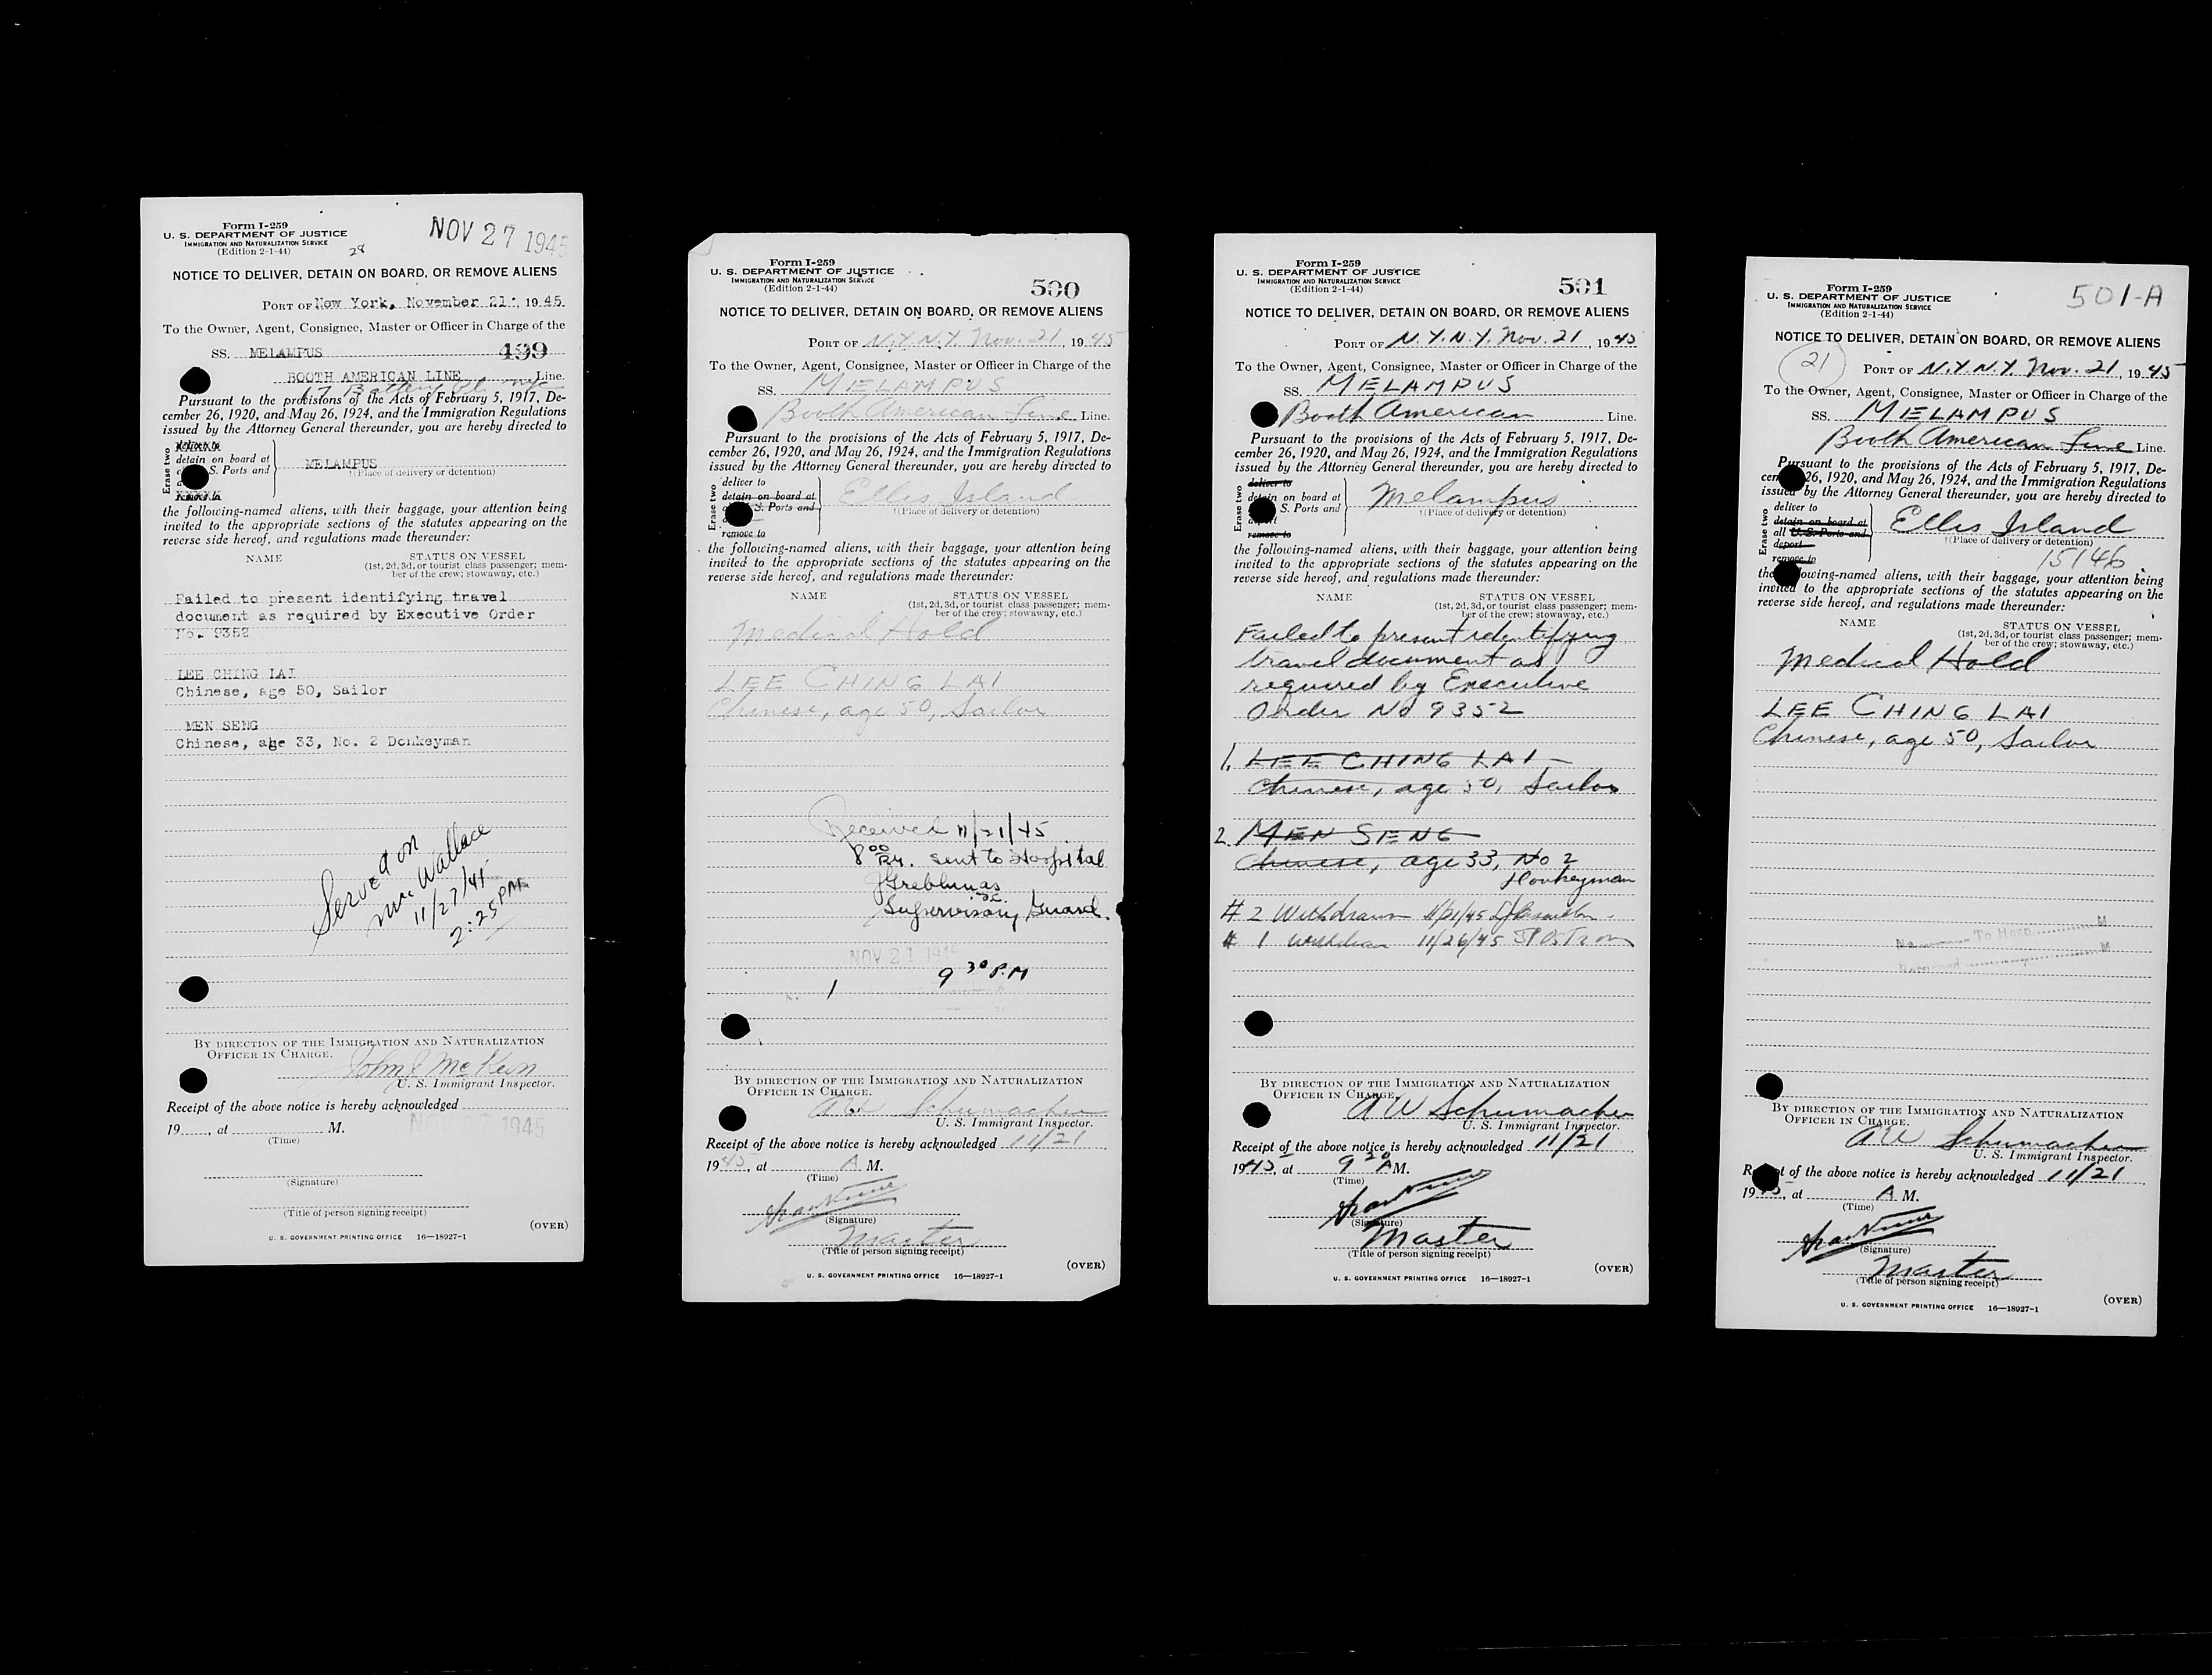 Form I-259
U. S. DEPARTMENT OF JUSTICE
IMMIGRATION AND NATURALIZATION SERVICE
(Edition 2-1-44)
28
NOV 27 1945
NOTICE TO DELIVER, DETAIN ON BOARD, OR REMOVE ALIENS
PORT OF New York, November 21, 1945
To the Owner, Agent, Consignee, Master or Officer in Charge of the
SS. MELAMPUS 499
BOOTH AMERICAN LINE Line.
17 Battery Pl NYC
Pursuant to the provisions of the Acts of February 5, 1917, De-
cember 26, 1920, and May 26, 1924, and the Immigration Regulations
issued by the Attorney General thereunder, you are hereby directed to
Erase two
deliver to
detain on board at
S. Ports and
remove to
MELAMPUS
†(Place of delivery or detention)
the following-named aliens, with their baggage, your attention being
invited to the appropriate sections of the statutes appearing on the
reverse side hereof, and regulations made thereunder:
NAME STATUS ON VESSEL
(1st, 2d, 3d, or tourist class passenger; mem-
ber of the crew; stowaway, etc.)
Failed to present identifying travel
document as required by Executive Order
No. 9352
LEE CHING LAI
Chinese, age 50, Sailor
MEN SENG
Chinese, age 33, No. 2 Donkeyman
Served on
Mr. Wallace
11/27/45
2:25 PM
BY DIRECTION OF THE IMMIGRATION AND NATURALIZATION
OFFICER IN CHARGE.
John J McKeon
U. S. Immigrant Inspector.
Receipt of the above notice is hereby acknowledged
19, at M. NOV 27 1945
(Time)
(Signature)
(Title of person signing receipt)
(OVER)
U. S. GOVERNMENT PRINTING OFFICE 16—18927-1
Form I-259
U. S. DEPARTMENT OF JUSTICE
IMMIGRATION AND NATURALIZATION SERVICE
(Edition 2-1-44)
500
NOTICE TO DELIVER, DETAIN ON BOARD, OR REMOVE ALIENS
PORT OF N.Y.N.Y. Nov. 21, 1945
To the Owner, Agent, Consignee, Master or Officer in Charge of the
SS. MELAMPUS
Booth American Line Line.
Pursuant to the provisions of the Acts of February 5, 1917, De-
cember 26, 1920, and May 26, 1924, and the Immigration Regulations
issued by the Attorney General thereunder, you are hereby directed to
Erase two
deliver to
detain on board at
S. Ports and
remove to
Ellis Island
†(Place of delivery or detention)
the following-named aliens, with their baggage, your attention being
invited to the appropriate sections of the statutes appearing on the
reverse side hereof, and regulations made thereunder:
NAME STATUS ON VESSEL
(1st, 2d, 3d, or tourist class passenger; mem-
ber of the crew; stowaway, etc.)
Medical Hold
LEE CHING LAI
Chinese, age 50, Sailor
Received 11/21/45
8 00 sent to Hospital
Supervisory Guard.
NOV 21 1945
1 9 30 P.M
BY DIRECTION OF THE IMMIGRATION AND NATURALIZATION
OFFICER IN CHARGE.
AW Schumacher
U. S. Immigrant Inspector.
Receipt of the above notice is hereby acknowledged 11/21
1945, at A M.
(Time)
(Signature)
Master
(Title of person signing receipt)
(OVER)
U. S. GOVERNMENT PRINTING OFFICE 16—18927-1
Form I-259
U. S. DEPARTMENT OF JUSTICE
IMMIGRATION AND NATURALIZATION SERVICE
(Edition 2-1-44)
501
NOTICE TO DELIVER, DETAIN ON BOARD, OR REMOVE ALIENS
PORT OF N.Y.N.Y. Nov. 21 1945
To the Owner, Agent, Consignee, Master or Officer in Charge of the
SS. MELAMPUS
Booth American Line.
Pursuant to the provisions of the Acts of February 5, 1917, De-
cember 26, 1920, and May 26, 1924, and the Immigration Regulations
issued by the Attorney General thereunder, you are hereby directed to
Erase two
deliver to
detain on board at
S. Ports and
deport
remove to
Melampus
†(Place of delivery or detention)
the following-named aliens, with their baggage, your attention being
invited to the appropriate sections of the statutes appearing on the
reverse side hereof, and regulations made thereunder:
NAME STATUS ON VESSEL
(1st, 2d, 3d, or tourist class passenger; mem-
ber of the crew; stowaway, etc.)
Failed to present identifying
travel document as
required by Executive
Order No 9352
1. LEE CHING LAI
Chinese, age 50, Sailor
2. MEN SENG
Chinese, age 33, No 2
Donkeyman
# 2 Withdrawn 11/21/45
# 1 withdrawn 11/26/45
BY DIRECTION OF THE IMMIGRATION AND NATURALIZATION
OFFICER IN CHARGE.
AW Schumacher
U. S. Immigrant Inspector.
Receipt of the above notice is hereby acknowledged 11/21
1945, at 9 20 A M.
(Time)
(Signature)
Master
(Title of person signing receipt)
(OVER)
U. S. GOVERNMENT PRINTING OFFICE 16—18927-1
Form I-259
U. S. DEPARTMENT OF JUSTICE
IMMIGRATION AND NATURALIZATION SERVICE
(Edition 2-1-44)
501-A
NOTICE TO DELIVER, DETAIN ON BOARD, OR REMOVE ALIENS
21
PORT OF N.Y.N.Y. Nov. 21, 1945
To the Owner, Agent, Consignee, Master or Officer in Charge of the
SS. MELAMPUS
Booth American Line Line.
Pursuant to the provisions of the Acts of February 5, 1917, De-
cem 26, 1920, and May 26, 1924, and the Immigration Regulations
issued by the Attorney General thereunder, you are hereby directed to
Erase two
deliver to
detain on board at
all U. S. Ports and
deport
remove to
Ellis Island
†(Place of delivery or detention)
15146
the following-named aliens, with their baggage, your attention being
invited to the appropriate sections of the statutes appearing on the
reverse side hereof, and regulations made thereunder:
NAME STATUS ON VESSEL
(1st, 2d, 3d, or tourist class passenger; mem-
ber of the crew; stowaway, etc.)
Medical Hold
LEE CHING LAI
Chinese, age 50, Sailor
No To Hosp. M
Returned M
BY DIRECTION OF THE IMMIGRATION AND NATURALIZATION
OFFICER IN CHARGE.
AW Schumacher
U. S. Immigrant Inspector.
Receipt of the above notice is hereby acknowledged 11/21
1945, at A M.
(Time)
(Signature)
Master
(Title of person signing receipt)
(OVER)
U. S. GOVERNMENT PRINTING OFFICE 16—18927-1